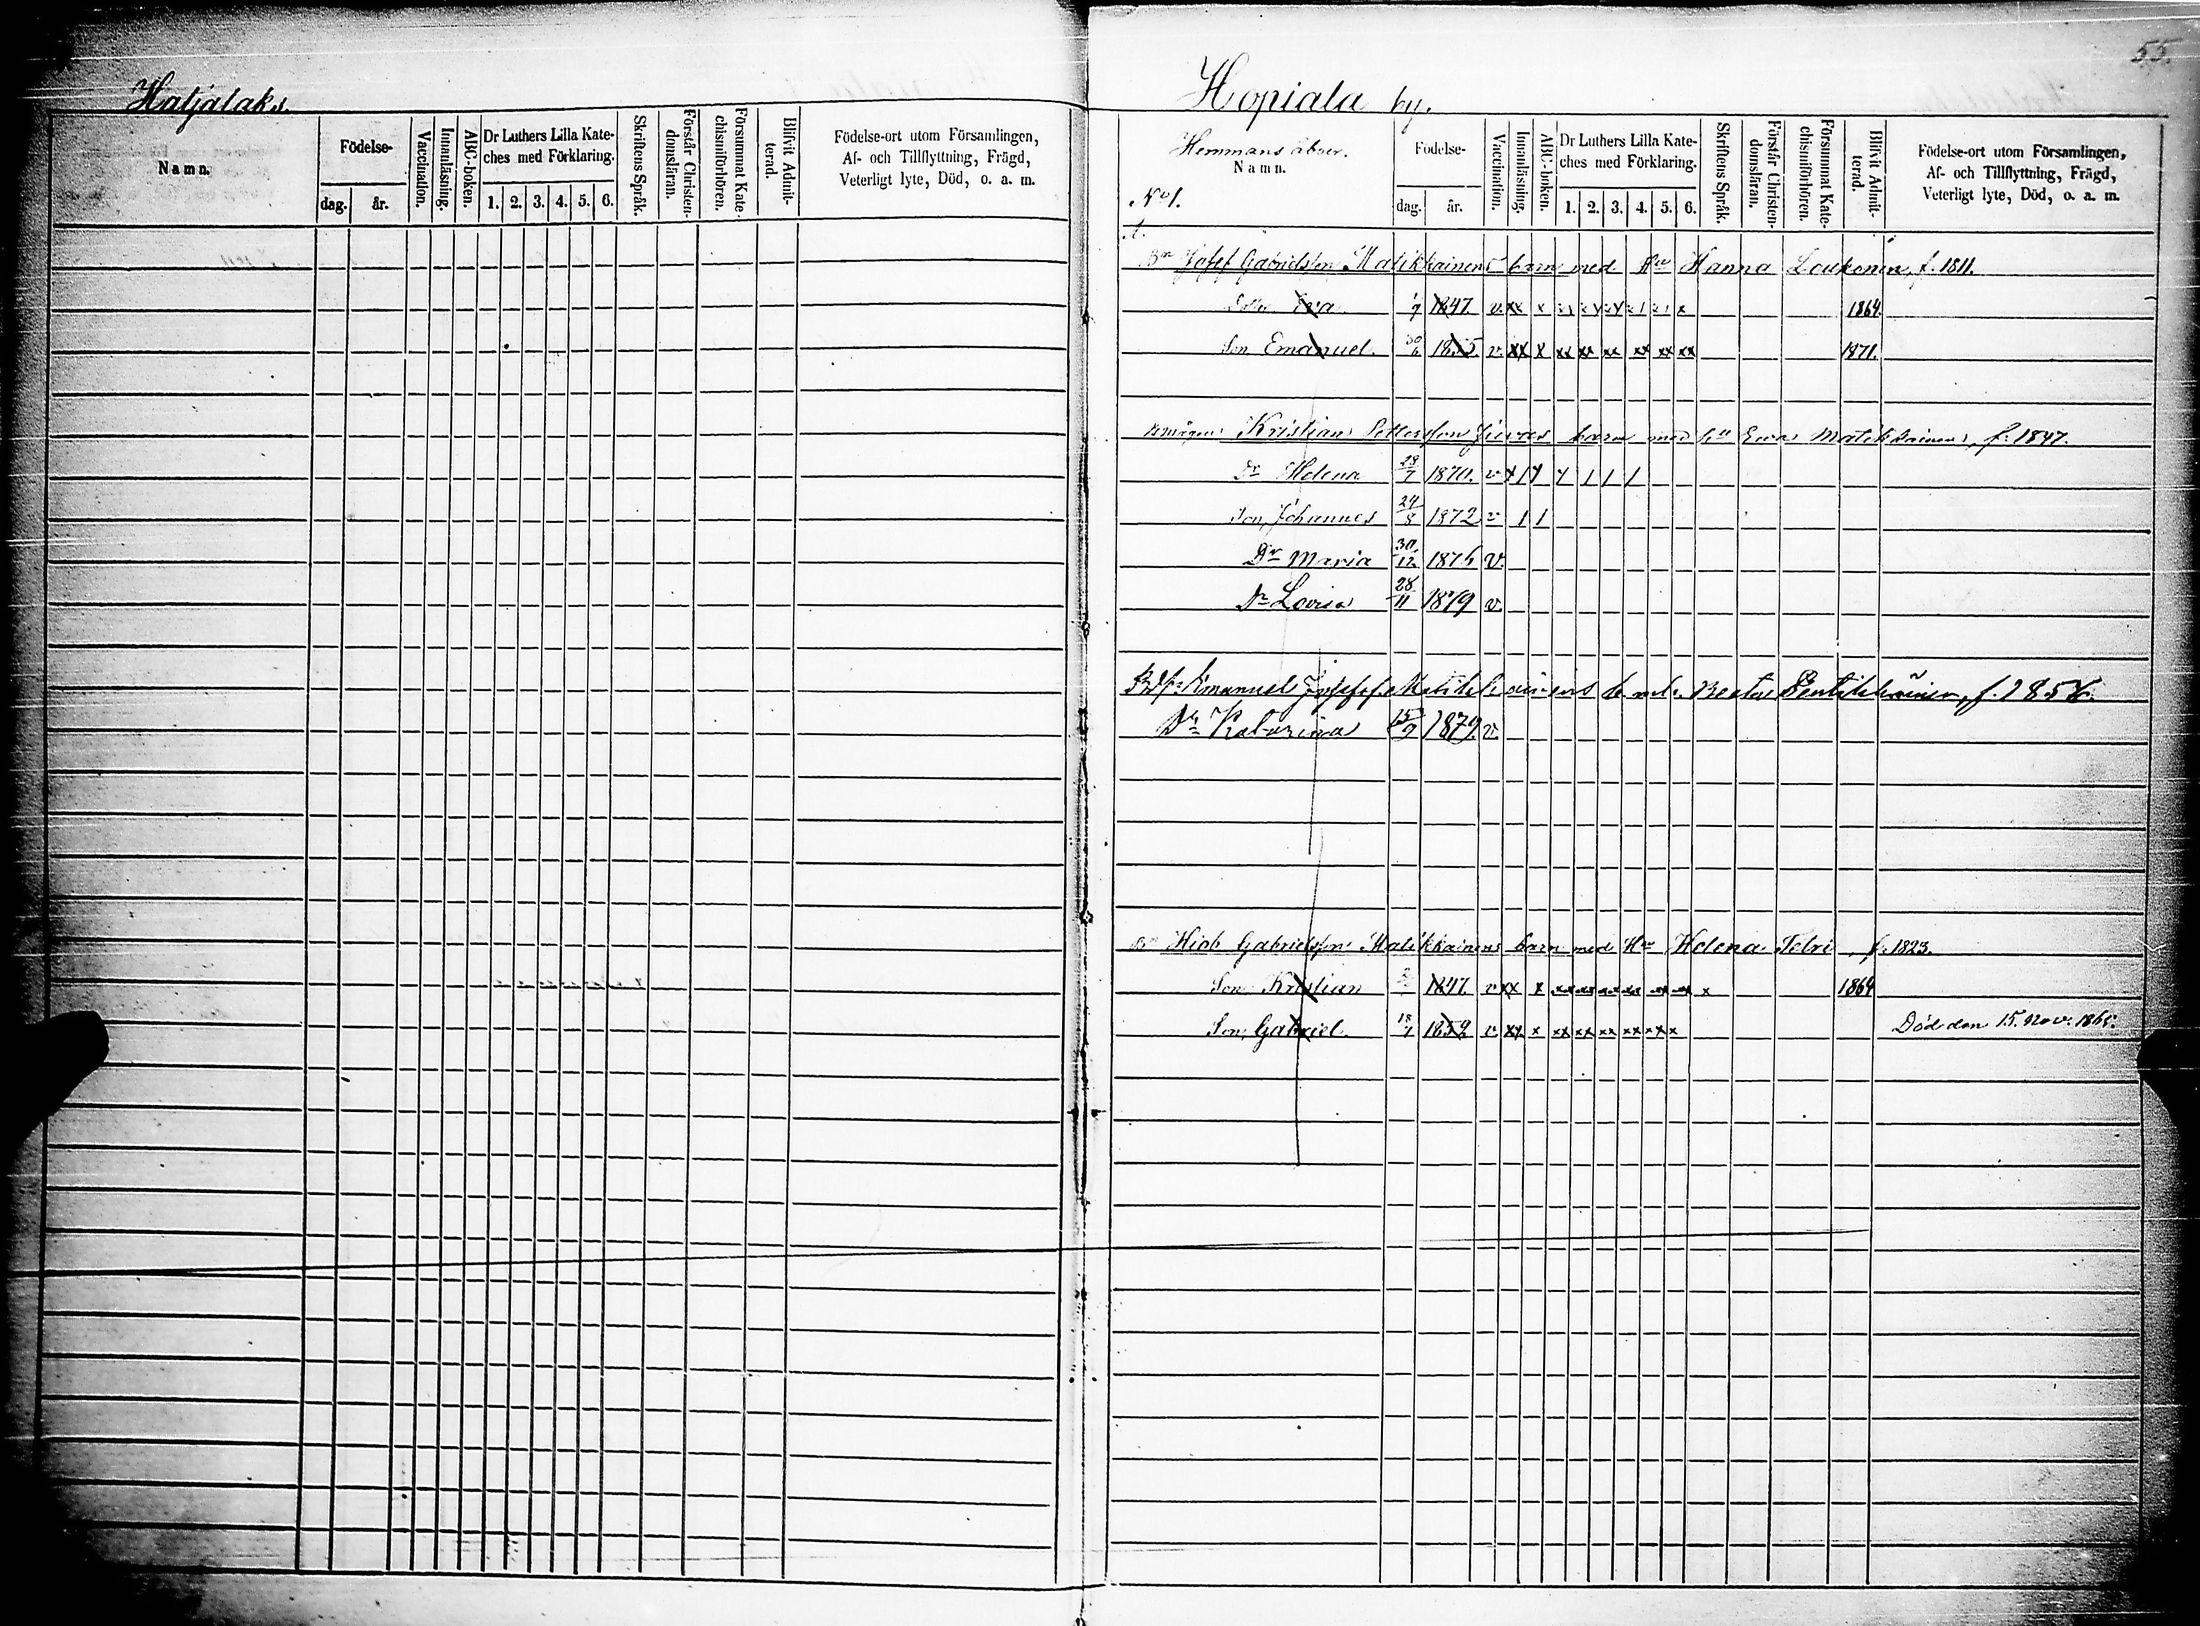 Hatjalaks.
Namn.
Födelse-
dag. år.
Vaccination.
Innanläsning.
ABC-boken.
Dr Luthers Lilla Kate-
ches med Förklaring.
1. 2. 3. 4. 5. 6.
Skriftens Språk.
Förstår Christen-
domsläran.
Försummat Kate-
chismiförhören.
Blifvit Admit-
terad.
Födelse-ort utom Församlingen,
Af- och Tillflyttning, Frägd,
Veterligt lyte, Död, o. a. m.
55.
Hopiala by.
Hemmans åboer.
Namn.
No 1.
Födelse-
dag. år.
Vaccination.
Innanläsning.
ABC-boken.
Dr Luthers Lilla Kate-
ches med Förklaring.
1. 2. 3. 4. 5. 6.
Skriftens Språk.
Förstår Christen-
domsläran.
Försummat Kate-
chismiförhören.
Blifvit Admit-
terad.
Födelse-ort utom Församlingen,
Af- och Tillflyttning, Frägd,
Veterligt lyte, Död, o. a. m.
Bn Josef Gabrielsson Matikkainens barn med Hu Hanna Loukonen, f. 1811.
Dotter Eva 1847 v. 1864.
Son Emanuel. 30/6 1855 v. xx x xx xx xx xx xx xx 1871.
Kristian Pettersson barn med hu Eva Matikkainen, f. 1847.
Dr Helena 28/7 1870. v
Son Johannes 24/8 1872 v
Dr Maria 30/12 1876 v.
Dr Lovisa 28/11 1879 v.
Emanuel Josefss. Matikkainens b. m. h. Beata f. 1856.
Dr Katarina 15/9 1879. v.
Bn Hiob Gabrielsson Matikkainens barn med Hu Helena Telri, f. 1823.
Son Kristian 1847 v xx x xx xx xx xx xx xx x 1864
Son Gabriel 18/7 1852 v xx x xx xx xx xx xx x Död den 15. Nov. 1865.